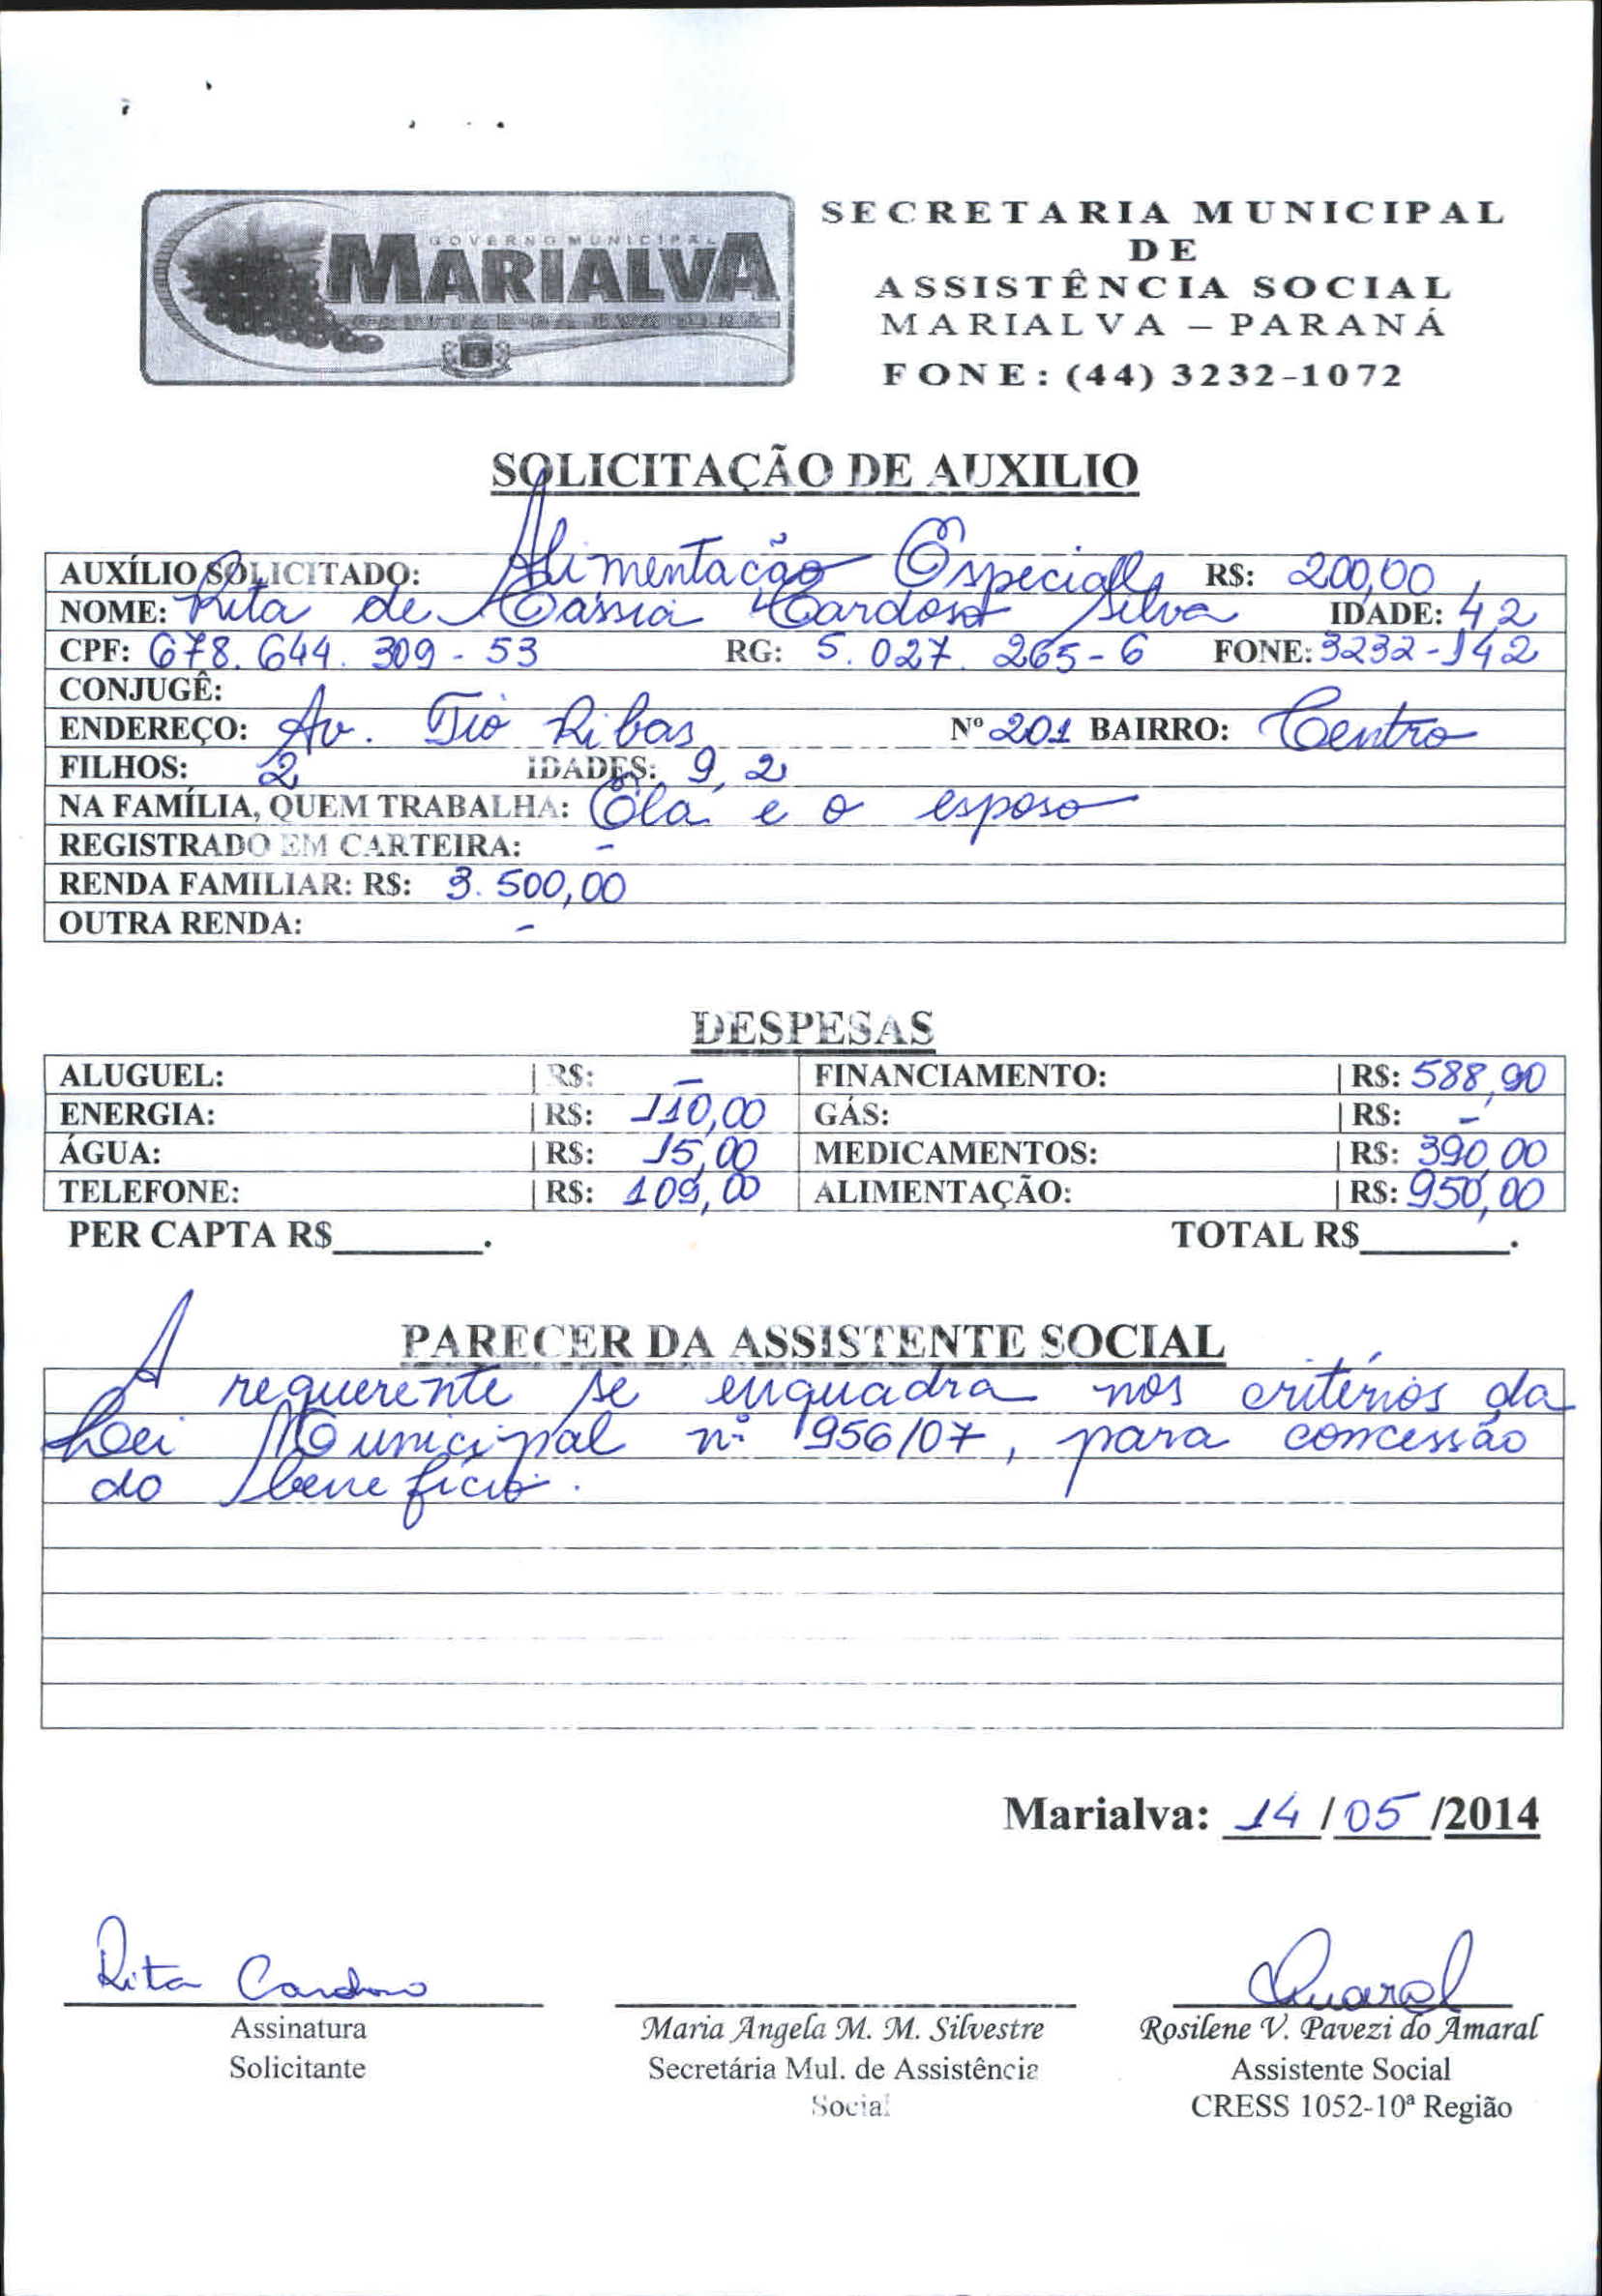 GOVERNO MUNICIPAL
MARIALVA
SECRETARIA MUNICIPAL
DE
ASSISTÊNCIA SOCIAL
MARIALVA – PARANÁ
FONE: (44) 3232-1072
SOLICITAÇÃO DE AUXILIO
AUXÍLIO SOLICITADO: Alimentação Especial R$: 200,00
NOME: Rita de Cássia Cardoso Silva IDADE: 42
CPF: 678.644.309-53 RG: 5.027.265-6 FONE: 3232-142
CONJUGÊ:
ENDEREÇO: Av. Tió Ribas Nº 201 BAIRRO: Centro
FILHOS: 2 IDADES: 9, 2
NA FAMÍLIA, QUEM TRABALHA: Ela e o esposo
REGISTRADO EM CARTEIRA: -
RENDA FAMILIAR: R$: 3.500,00
OUTRA RENDA: -
DESPESAS
ALUGUEL: | R$: - FINANCIAMENTO: | R$: 588,90
ENERGIA: | R$: 110,00 GÁS: | R$: -
ÁGUA: | R$: 15,00 MEDICAMENTOS: | R$: 390,00
TELEFONE: | R$: 109,00 ALIMENTAÇÃO: | R$: 950,00
PER CAPTA R$________. TOTAL R$________.
PARECER DA ASSISTENTE SOCIAL
A requerente se enquadra nos critérios da
Lei Municipal nº 956/07, para concessão
do benefício.
Marialva: 14/05/2014
Rita Cardoso
Amaral
Assinatura
Solicitante
Maria Angela M. M. Silvestre
Secretária Mul. de Assistência
Social
Rosilene V. Pavezi do Amaral
Assistente Social
CRESS 1052-10ª Região